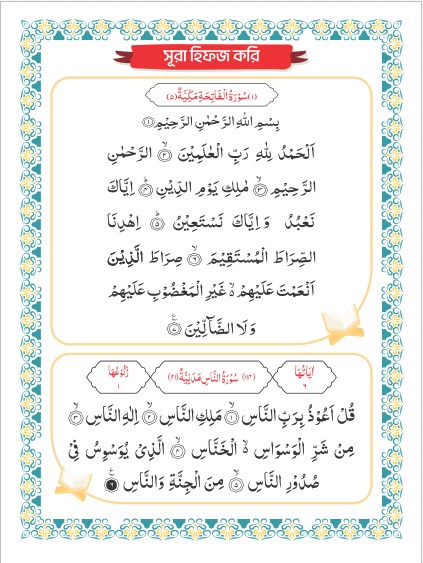 সূরা হিফজ করি
(١) سُوْرَةُ الْفَاتِحَةِ مَكِّيَّةٌ (٥)
بِسْمِ اللهِ الرَّحْمٰنِ الرَّحِيْمِ ۝١
اَلْحَمْدُ لِلّٰهِ رَبِّ الْعٰلَمِيْنَ ۝٢ الرَّحْمٰنِ
الرَّحِيْمِ ۝٣ مٰلِكِ يَوْمِ الدِّيْنِ ۝٤ اِيَّاكَ
نَعْبُدُ وَاِيَّاكَ نَسْتَعِيْنُ ۝٥ اِهْدِنَا
الصِّرَاطَ الْمُسْتَقِيْمَ ۝٦ صِرَاطَ الَّذِيْنَ
اَنْعَمْتَ عَلَيْهِمْ ۙ غَيْرِ الْمَغْضُوْبِ عَلَيْهِمْ
وَلَا الضَّآلِّيْنَ ۝٧
اٰيَاتُهَا ٦
(١١٤) سُوْرَةُ النَّاسِ مَدَنِيَّةٌ (٢١)
رُكُوْعُهَا ١
قُلْ اَعُوْذُ بِرَبِّ النَّاسِ ۝١ مَلِكِ النَّاسِ ۝٢ اِلٰهِ النَّاسِ ۝٣
مِنْ شَرِّ الْوَسْوَاسِ ۙ الْخَنَّاسِ ۝٤ الَّذِيْ يُوَسْوِسُ فِيْ
صُدُوْرِ النَّاسِ ۝٥ مِنَ الْجِنَّةِ وَالنَّاسِ ۝٦